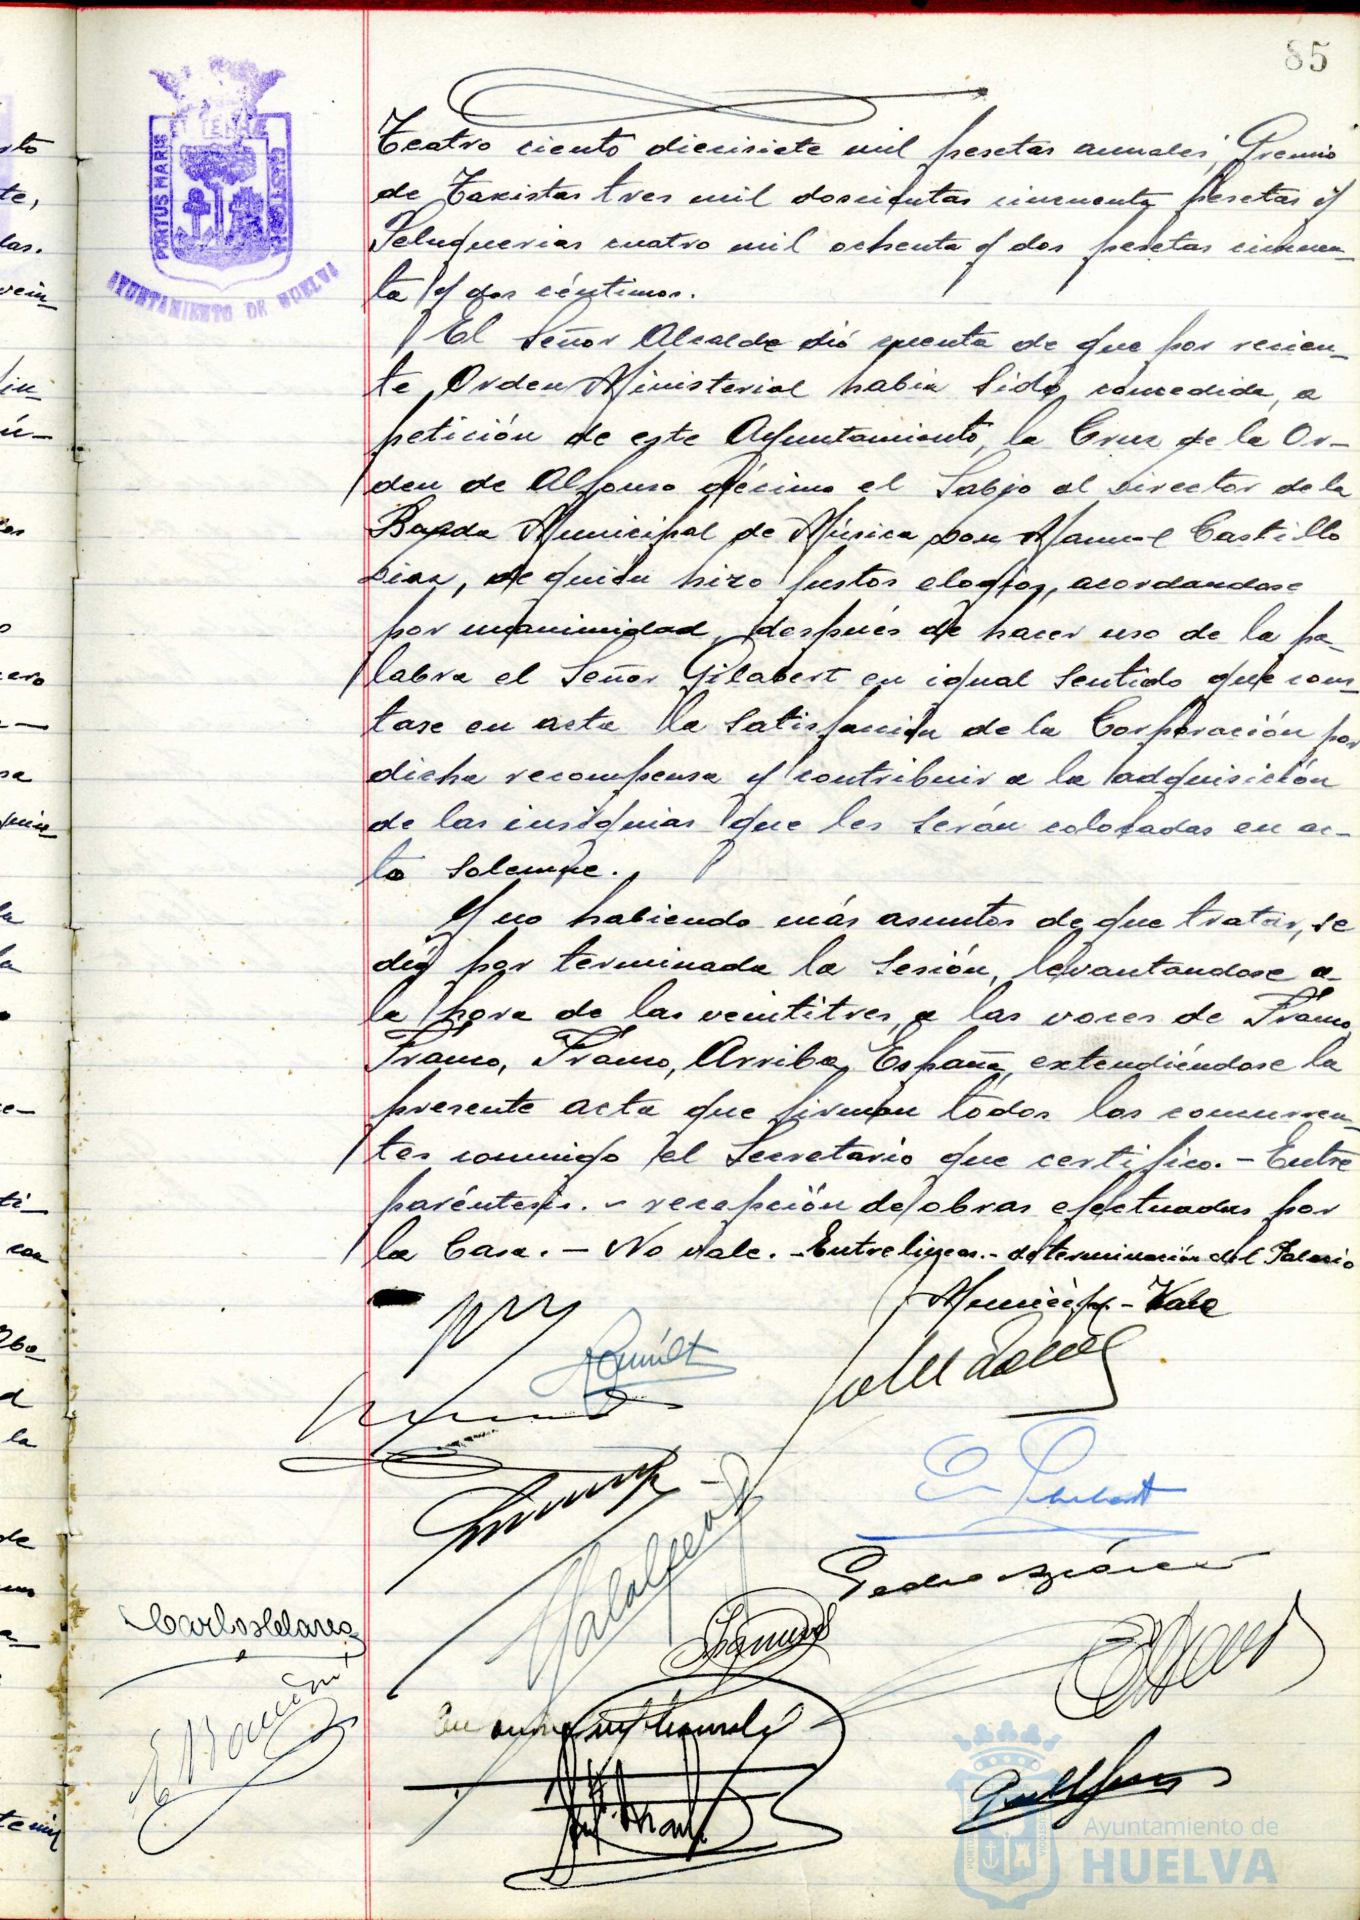 85
PORTUS MARIS
ET TERRÆ
CUSTODIA
AYUNTAMIENTO DE HUELVA
Teatro ciento diecisiete mil pesetas anuales; Gremio
de Taxistas tres mil doscientas cincuenta pesetas y
Peluquerias cuatro mil ochenta y dos pesetas cincuen-
ta y dos céntimos.
El Señor Alcalde dió cuenta de que por recien-
te Orden Ministerial habia sido concedida, a
petición de este Ayuntamiento, la Cruz de la Or-
den de Alfonso décimo el Sabio al Director de la
Banda Municipal de Música Don Manuel Castillo
Diaz, de quién hizo justos elogios, acordandose
por unanimidad, después de hacer uso de la pa-
labra el Señor Gilabert en igual sentido que cons-
tase en acta la satisfacción de la Corporación por
dicha recompensa y contribuir a la adquisición
de las insignias que les serán colocadas en ac-
to solemne.
Y no habiendo más asuntos de que tratar, se
dió por terminada la sesión, levantandose a
la hora de las veintitres, a las voces de Franco,
Franco, Franco, Arriba España, extendiéndose la
presente acta que firman todos los concurren-
tes conmigo el Secretario que certifico. - Entre
paréntesis. - recepción de obras efectuadas por
la Casa. - No vale. - Entrelineas. - determinación del Palacio
Municipal - Vale
Ayuntamiento de
HUELVA